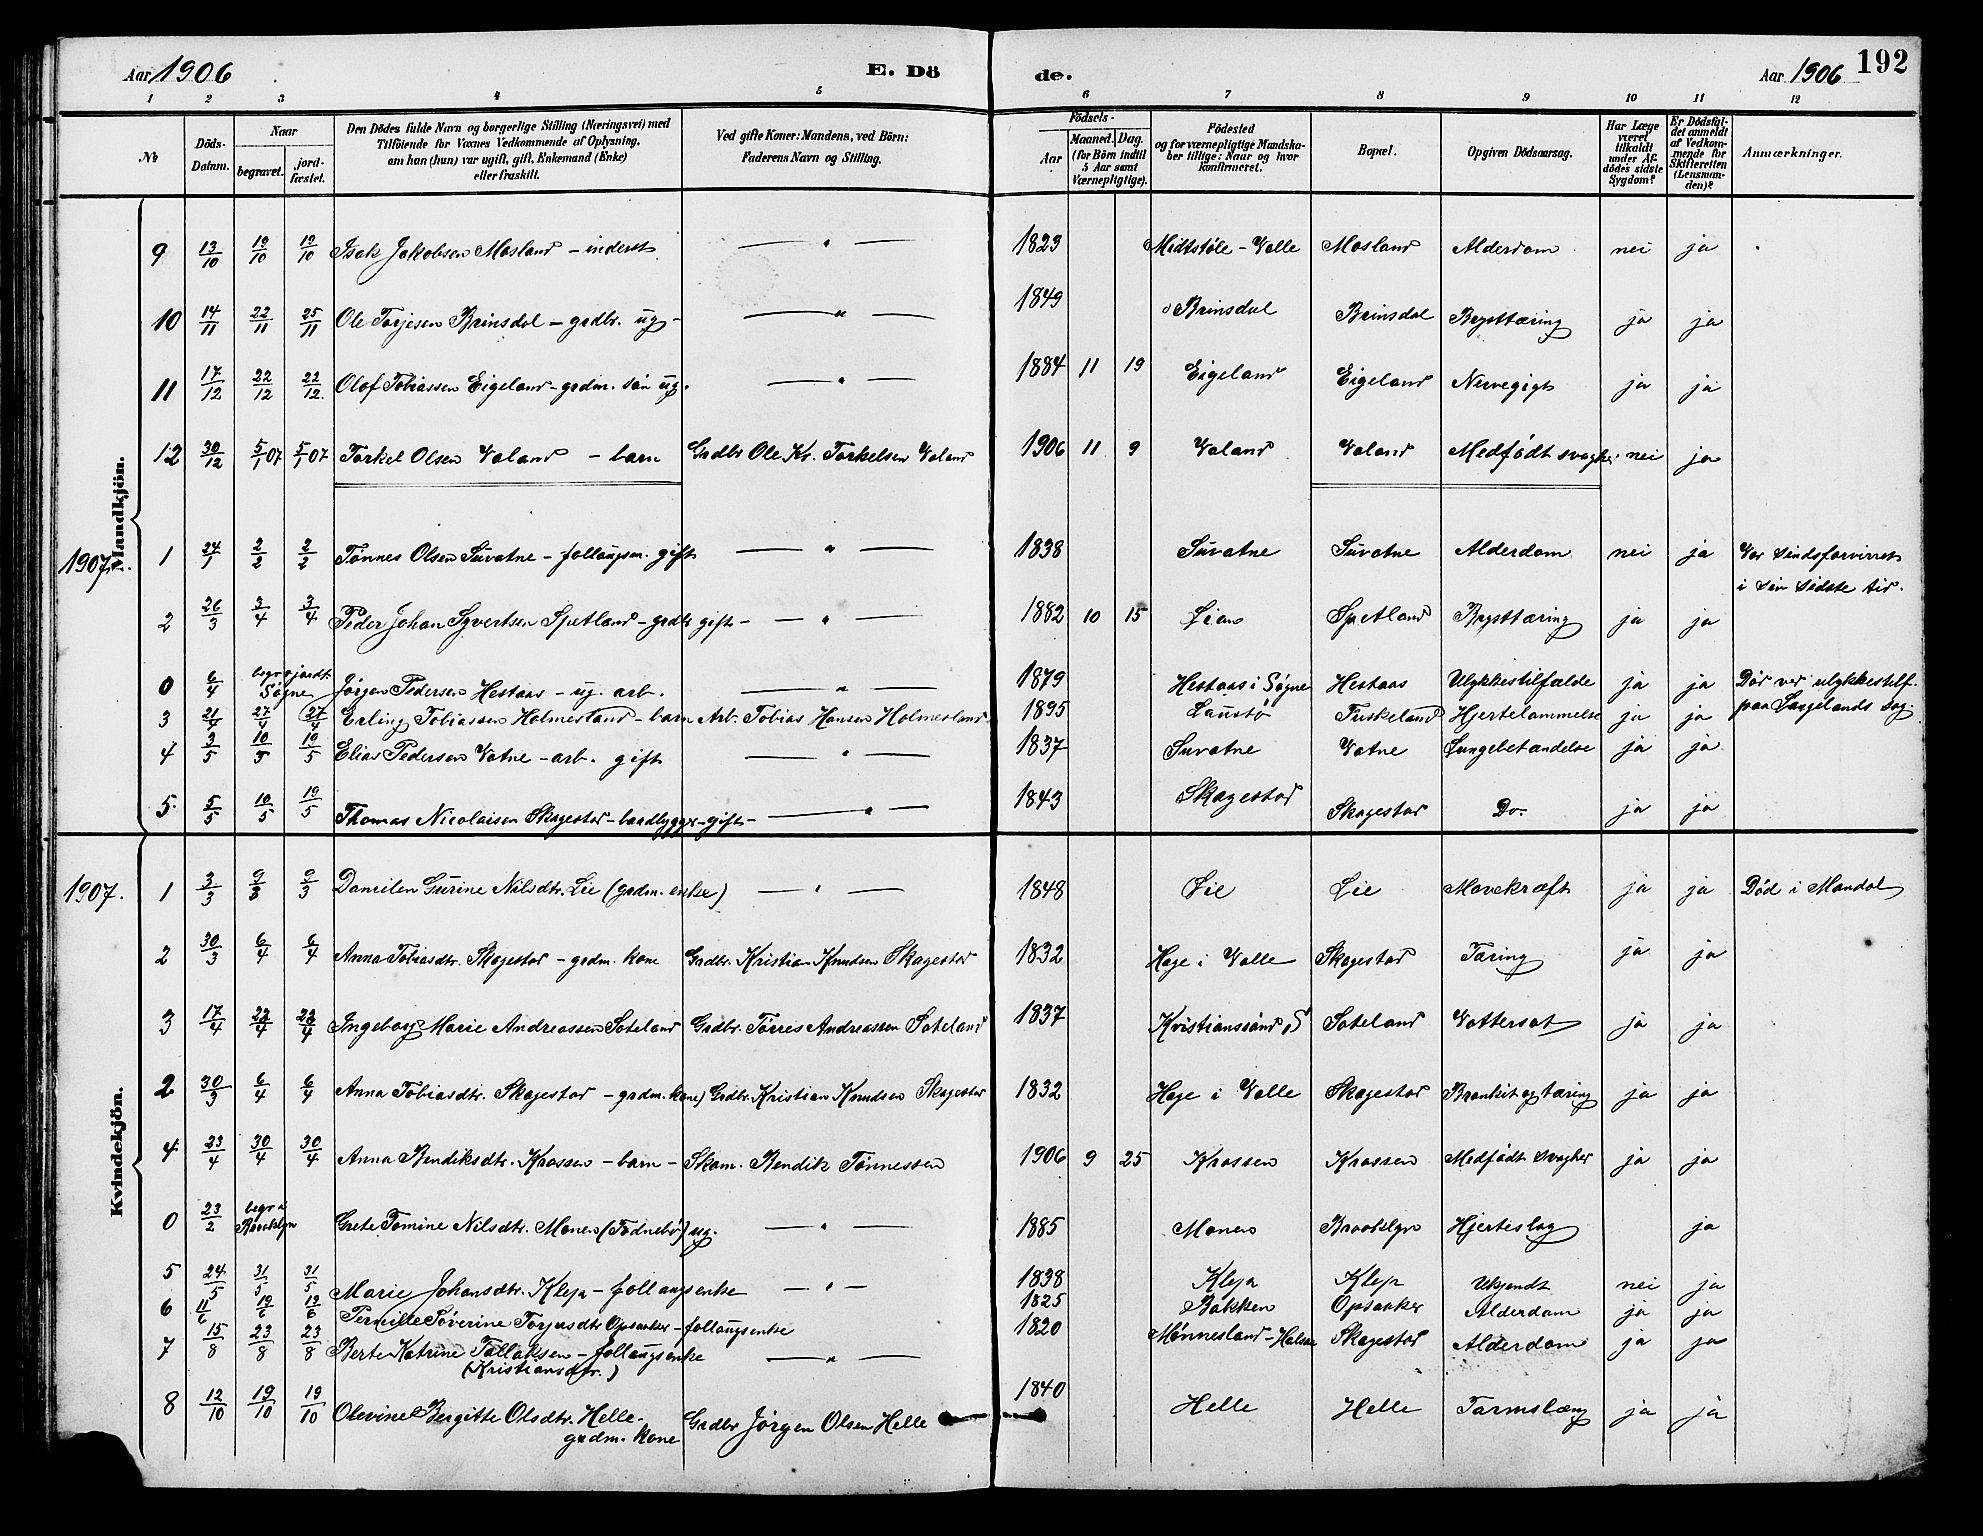 Aar 1906 E. Dö de. Aar 1906 192
1 2 3 4 5 6 7 8 9 10 11 12
No
Döds-Datum.
Naar
begravet.
jord-fæstet.
Den Dödes fulde Navn og borgerlige Stilling (Næringsvei) med
Tilföiende for Voxnes Vedkommende af Oplysning,
om han (hun) var ugift, gift, Enkemand (Enke)
eller fraskilt.
Ved gifte Koner: Mandens, ved Börn:
Faderens Navn og Stilling.
Födsels-
Aar
Maaned. Dag.
(for Börn indtil
5 Aar samt
Værnepligtige).
Födested
og for værnepligtige Mandska-
ber tillige: Naar og hvor
konfirmeret.
Bopæl.
Opgiven Dödsaarsag.
Har Læge
været
tilkaldt
under Af-
dödes sidste
Sygdom?
Er Dödsfal-
det anmeldt
af Vedkom-
mende for
Skifteretten
(Lensman-
den)?
Anmærkninger.
Mandkjön.
9 13/10 19/10 19/10 Isak Jakobsen Mosland - inderst — " — 1823 Midtstøle - Valle Mosland Alderdom nei ja
10 14/11 22/11 25/11 Ole Torjesen Brinsdal - grdbr. ug - — " — 1849 Brinsdal Brinsdal Brysttæring ja ja
11 17/12 22/12 22/12. Olof Tobiassen Eigeland - grdm. søn ug. — " — 1884 11 19 Eigeland Eigeland Nervegigt ja ja
12 30/12 5/1 07 5/1 07 Torkel Olsen Valand - barn Grdbr Ole Kr. Torkelsen Valand 1906 11 9 Valand Valand Medfødt svaghe. nei ja
1907.
1 24/1 2/2 2/2 Tønnes Olsen Suvatne - follaugsm. gift — " — 1838 Suvatne Suvatne Alderdom nei ja Var sindsforvirret
i sin sidste tid.
2 26/3 3/4 3/4 Peder Johan Syvertsen Spetland - grdbr gift - — " — 1882 10 15 Spetland Brysttæring ja ja
0 6/4 Søgne Jørgen Pedersen Hestaas - ug. arb. — " — 1879 Hestaas i Søgne Hestaas Ulykkestilfælde ja ja Død ved ulykkestilf.
paa Langelands Sag.
3 21/4 27/4 27/4 Erling Tobiassen Holmesland - barn Arb. Tobias Hansen Holmesland 1895 Tuskeland Hjertelammelse ja ja
4 3/5 10/5 10/5 Elias Pedersen Vatne - arb. gift — " — 1837 Suvatne Vatne Lungebetændelse ja ja
5. 5/5 10/5 19/5 Thomas Nicolaisen Skagestad - baadbygger - gift - — " — 1843 Skagestad Skagestad Do. ja ja
Kvindekjön.
1907.
1 3/3 9/3 9/3 Danielen Gurine Nilsdtr. Lie (grdm. enke) — " — 1848 Lie Lie Mavekræft ja ja Død i Mandal
2 30/3 6/4 6/4 Anna Tobiasdtr. Skagestad - grdm. kone Grdbr. Kristian Knudsen Skagestad 1832 Hage i Valle Skagestad Tæring ja ja
3 17/4 23/4 23/4 Ingeborg Marie Andreassen Søteland Grdbr. Tørres Andreassen Søteland 1837 Kristianssand S Søteland Vattersot ja ja
2 30/3 6/4 6/4 Anna Tobiasdtr. Skagestad - grdm. kone) Grdbr. Kristian Knudsen Skagestad 1832 Hage i Valle Skagestad Bronkit og tæring ja ja
4 23/4 30/4 30/4 Anna Bendiksdtr. Krossen - barn - Skom. Bendik Tønnessen 1906 9 25 Krossen Krossen Medfødt svaghed ja ja
0 23/2 begr. i Brooklyn Grete Tomine Nilsdtr. Monen (Fodnebø) ug. — " — 1885 Monen Brooklyn Hjerteslag ja
5 24/5 31/5 31/5 Marie Johansdtr. Klepa - follaugsenke — " — 1838 Klepa Klepp Ukjendt nei ja
6 11/6 19/6 19/6 Pernille Søverine Torjusdtr Opsaaker - follaugsenke 1825 Bakken Opsaaker Alderdom ja ja
7 15/8 23/8 23/8 Berte Katrine Tallaksen - follaugsenke — " — 1820 Mønnesland - Halsaa Skagestad Alderdom ja ja
(Kristiansdtr.)
8 12/10 19/10 19/10 Olevine Bergitte Olsdtr. Helle - Grdbr Jørgen Olsen Helle 1840 Helle Helle Tarmslæng ja ja
grdm. kone